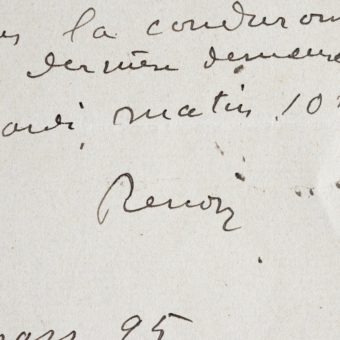 la conduron
dernière demeure
matin 10
Renoir
mars 95